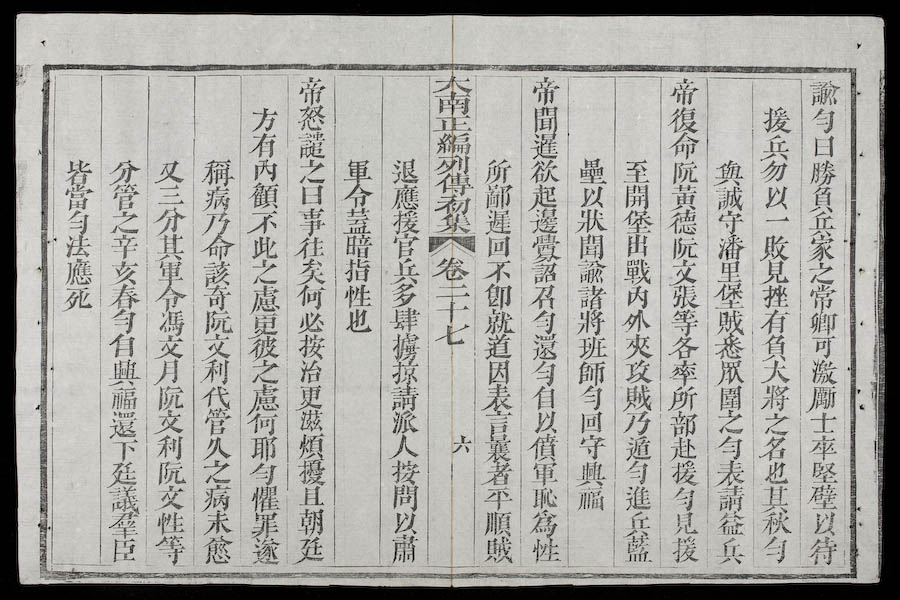 諭勻曰勝負兵家之常卿可激勵士卒堅壁以待
援兵勿以一敗見挫有負大將之名也其秋勻
與誠守潘里堡賊悉眾圍之勻表請益兵
帝復命阮黃德阮文張等各率所部赴援勻見援
至開堡出戰內外夾攻賊乃遁勻進丘藍
壘以狀聞諭諸將班師勻回守興福
帝聞暹欲起邊釁詔召勻還勻自以僨軍恥為性
所鄙遲回不卽就道因表言曩者平順賊
大南正編列傳初集 卷二十七 六
退應援官兵多肆擄掠請派人按問以肅
軍令蓋暗指性也
帝怒譴之曰事往矣何必按治更滋煩擾且朝廷
方有內顧不此之慮更彼之慮何耶勻懼罪遂
稱病乃命該奇阮文利代管久之病未愈
又三分其軍令馮文月阮文利阮文性等
分管之辛亥春勻自興福還下廷議羣臣
皆當勻法應死